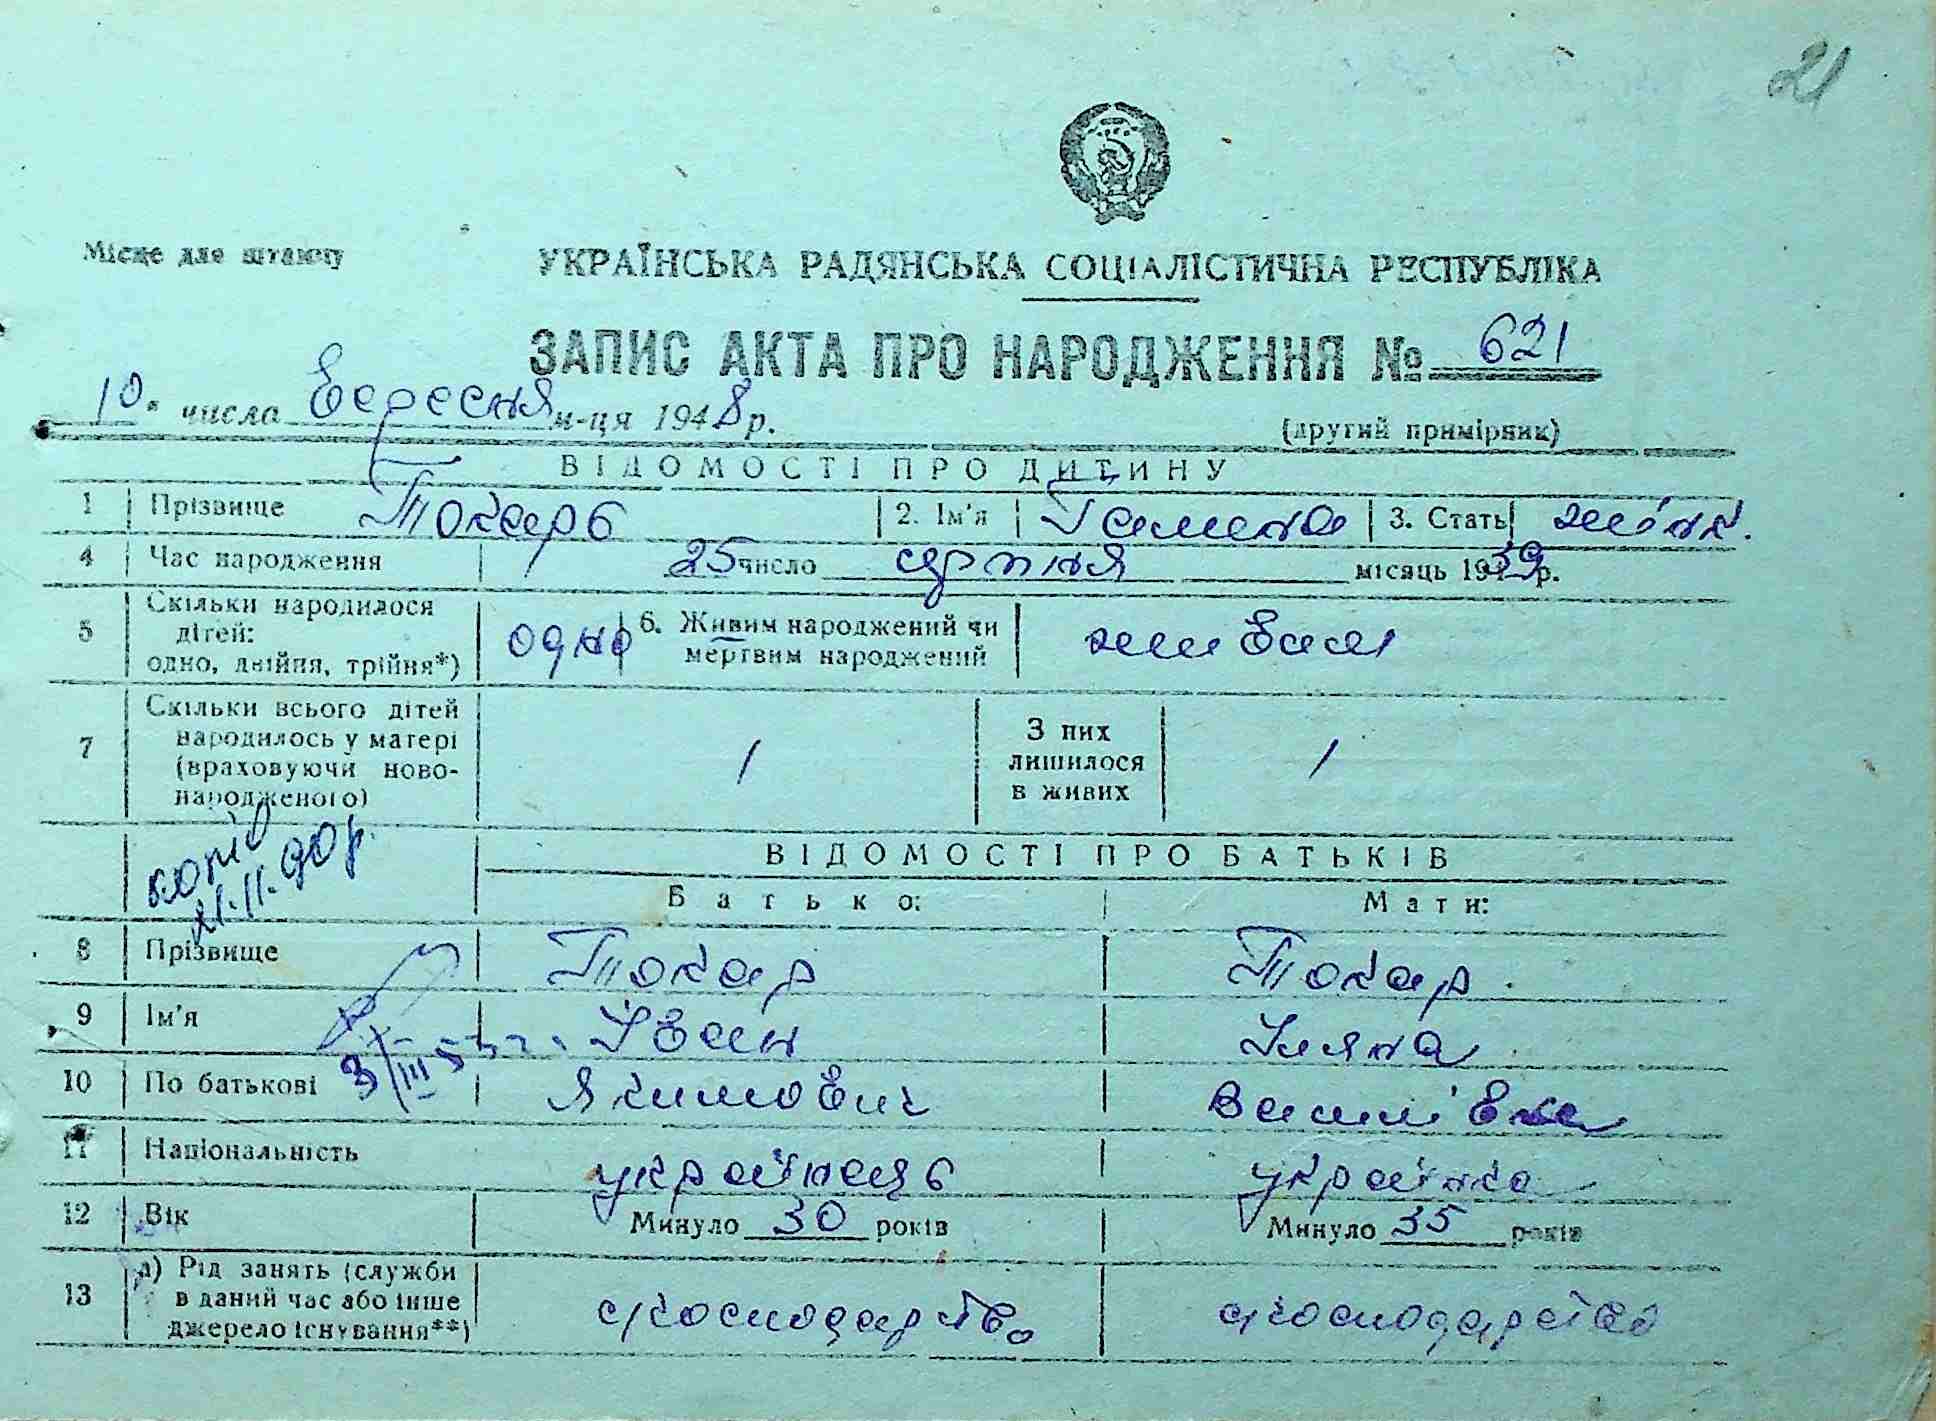 21
Місце для штампу
УКРАЇНСЬКА РАДЯНСЬКА СОЦІАЛІСТИЧНА РЕСПУБЛІКА
ЗАПИС АКТА ПРО НАРОДЖЕННЯ № 621
10 числа Вересня м-ця 1948 р.
(другий примірник)
ВІДОМОСТІ ПРО ДИТИНУ
1 Прізвище Токарь 2. Ім'я Ганна 3. Стать жінк.
4 Час народження 25 число серпня місяць 1939 р.
5 Скільки народилося дітей: одно, двійня, трійня*) одно 6. Живим народжений чи мертвим народжений живим
7 Скільки всього дітей народилось у матері (враховуючи новонародженого) 1 З них лишилося в живих 1
копію
21.11.90р.
ВІДОМОСТІ ПРО БАТЬКІВ
Батько: Мати:
8 Прізвище Токар Токар
9 Ім'я Іван Уляна
3/III 53 г.
10 По батькові Якимович Василівна
11 Національність українець українка
12 Вік Минуло 30 років Минуло 35 років
13 а) Рід занять (служби
в даний час або інше
джерело існування**)